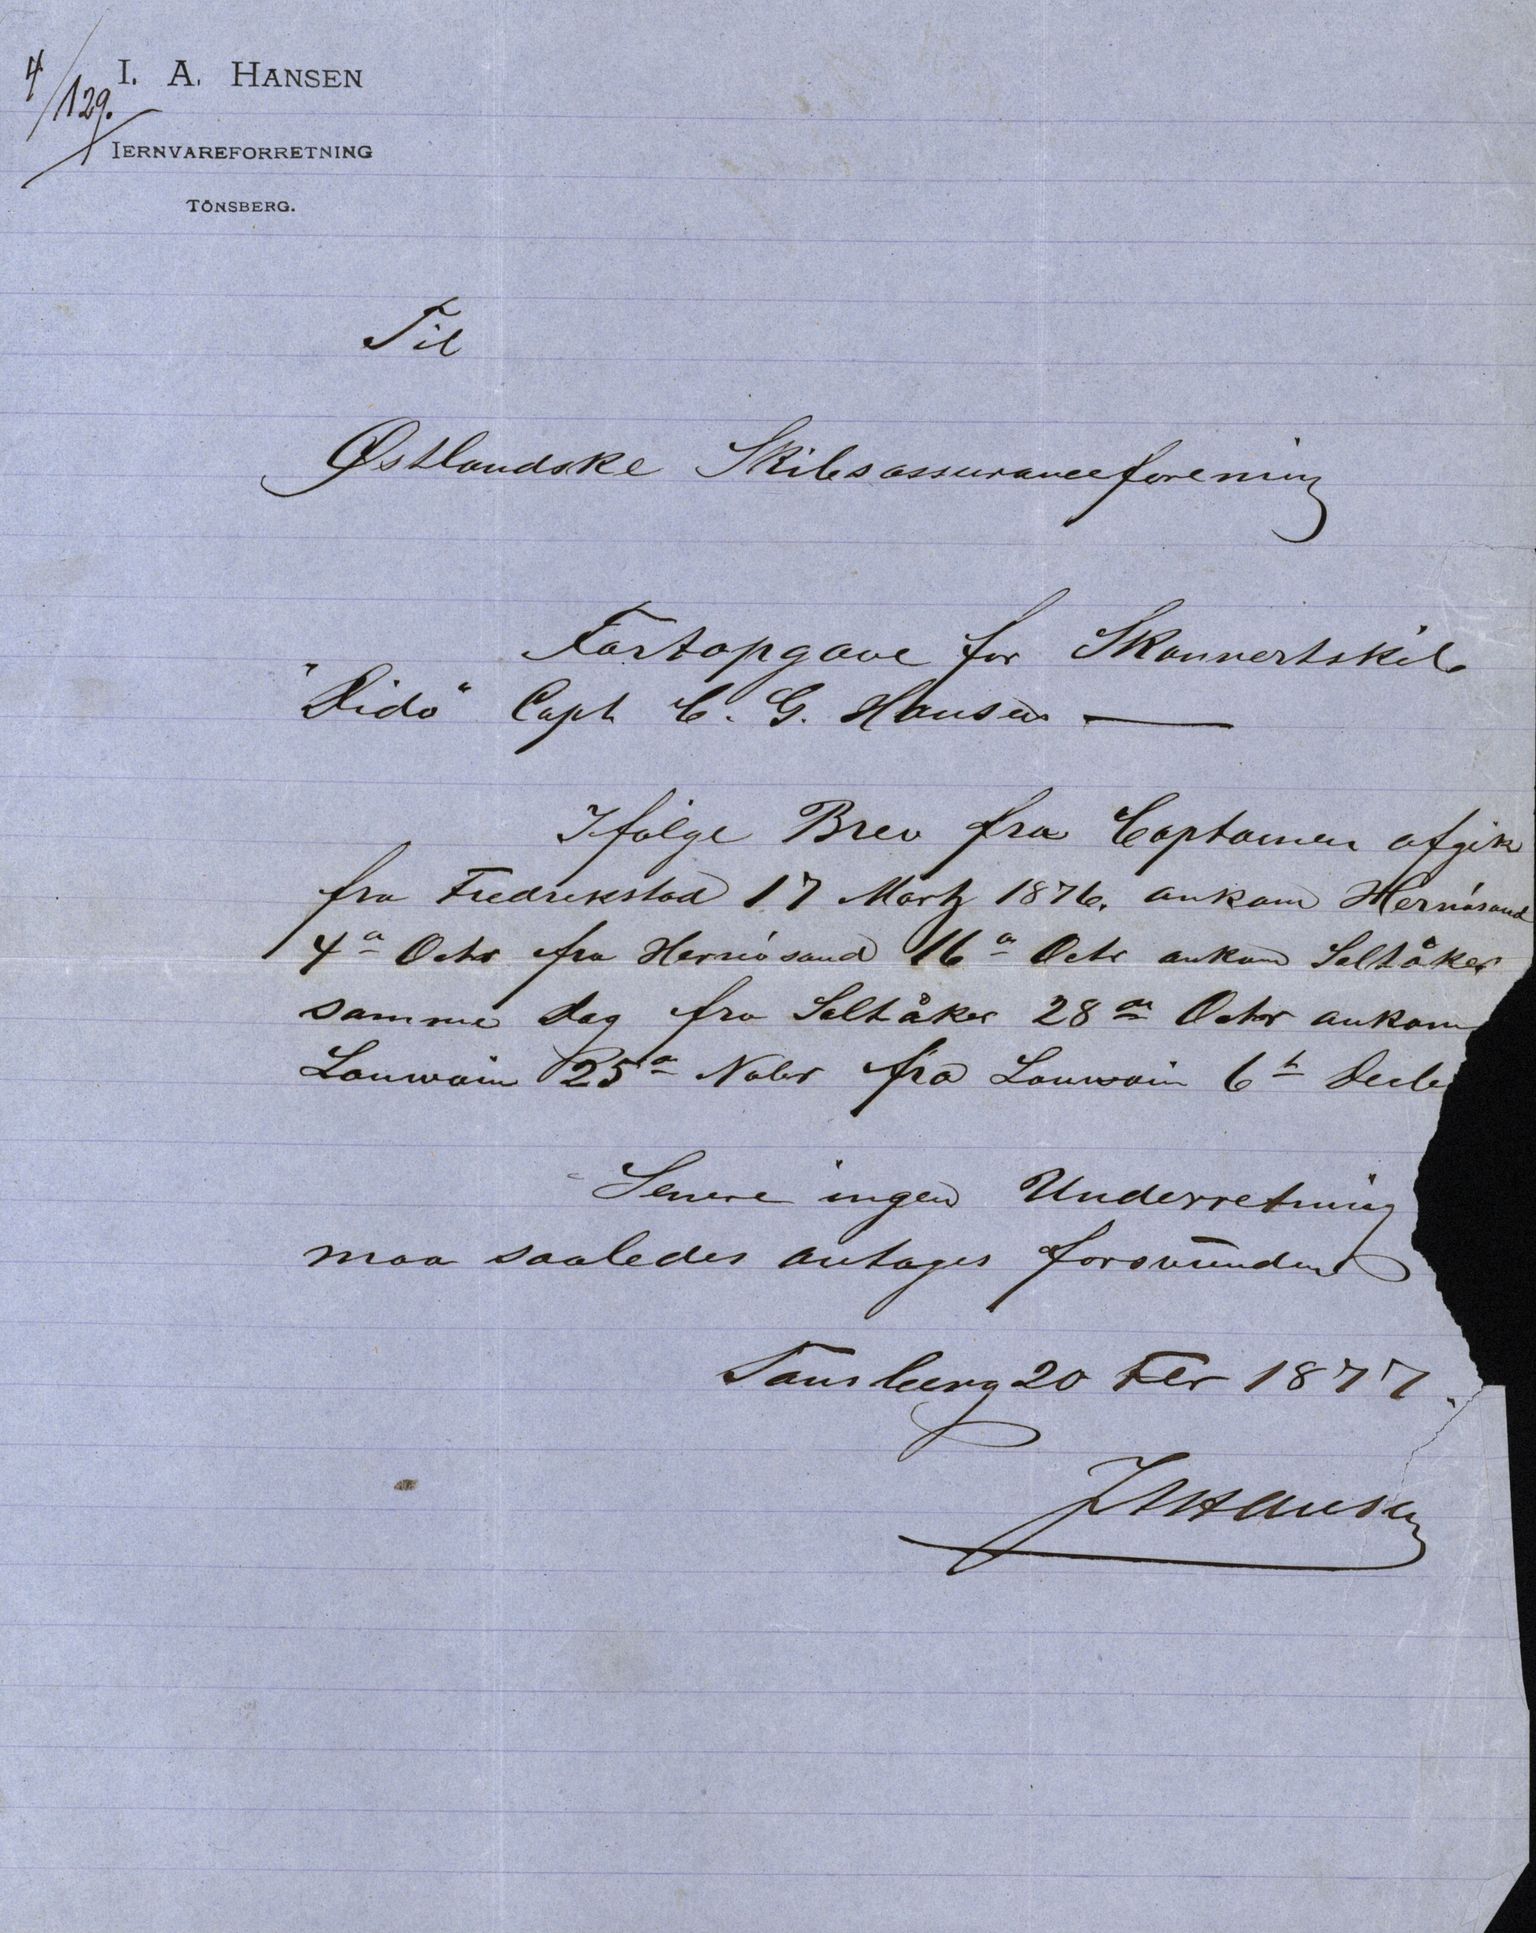 4/129.
I. A. HANSEN
IERNVAREFORRETNING
TÖNSBERG.
Til
Østlandske Skibsassuranceforening
Fartopgave for Skonnertskib
"Dido" Capt C. G. Hansen
Ifølge Brev fra Captainen afgik
fra Fredrikstad 17 Martz 1876. ankom Hernösand
4a Octr fra Hernösand 16a Octr ankom Saltåker
samme Dag fra Saltåker 28 Octr ankom
25a Nobr fra 6t
Senere ingen Underretning
maa saaledes antages forsvunden
Tønsberg 20 Febr 1877.
I A Hansen